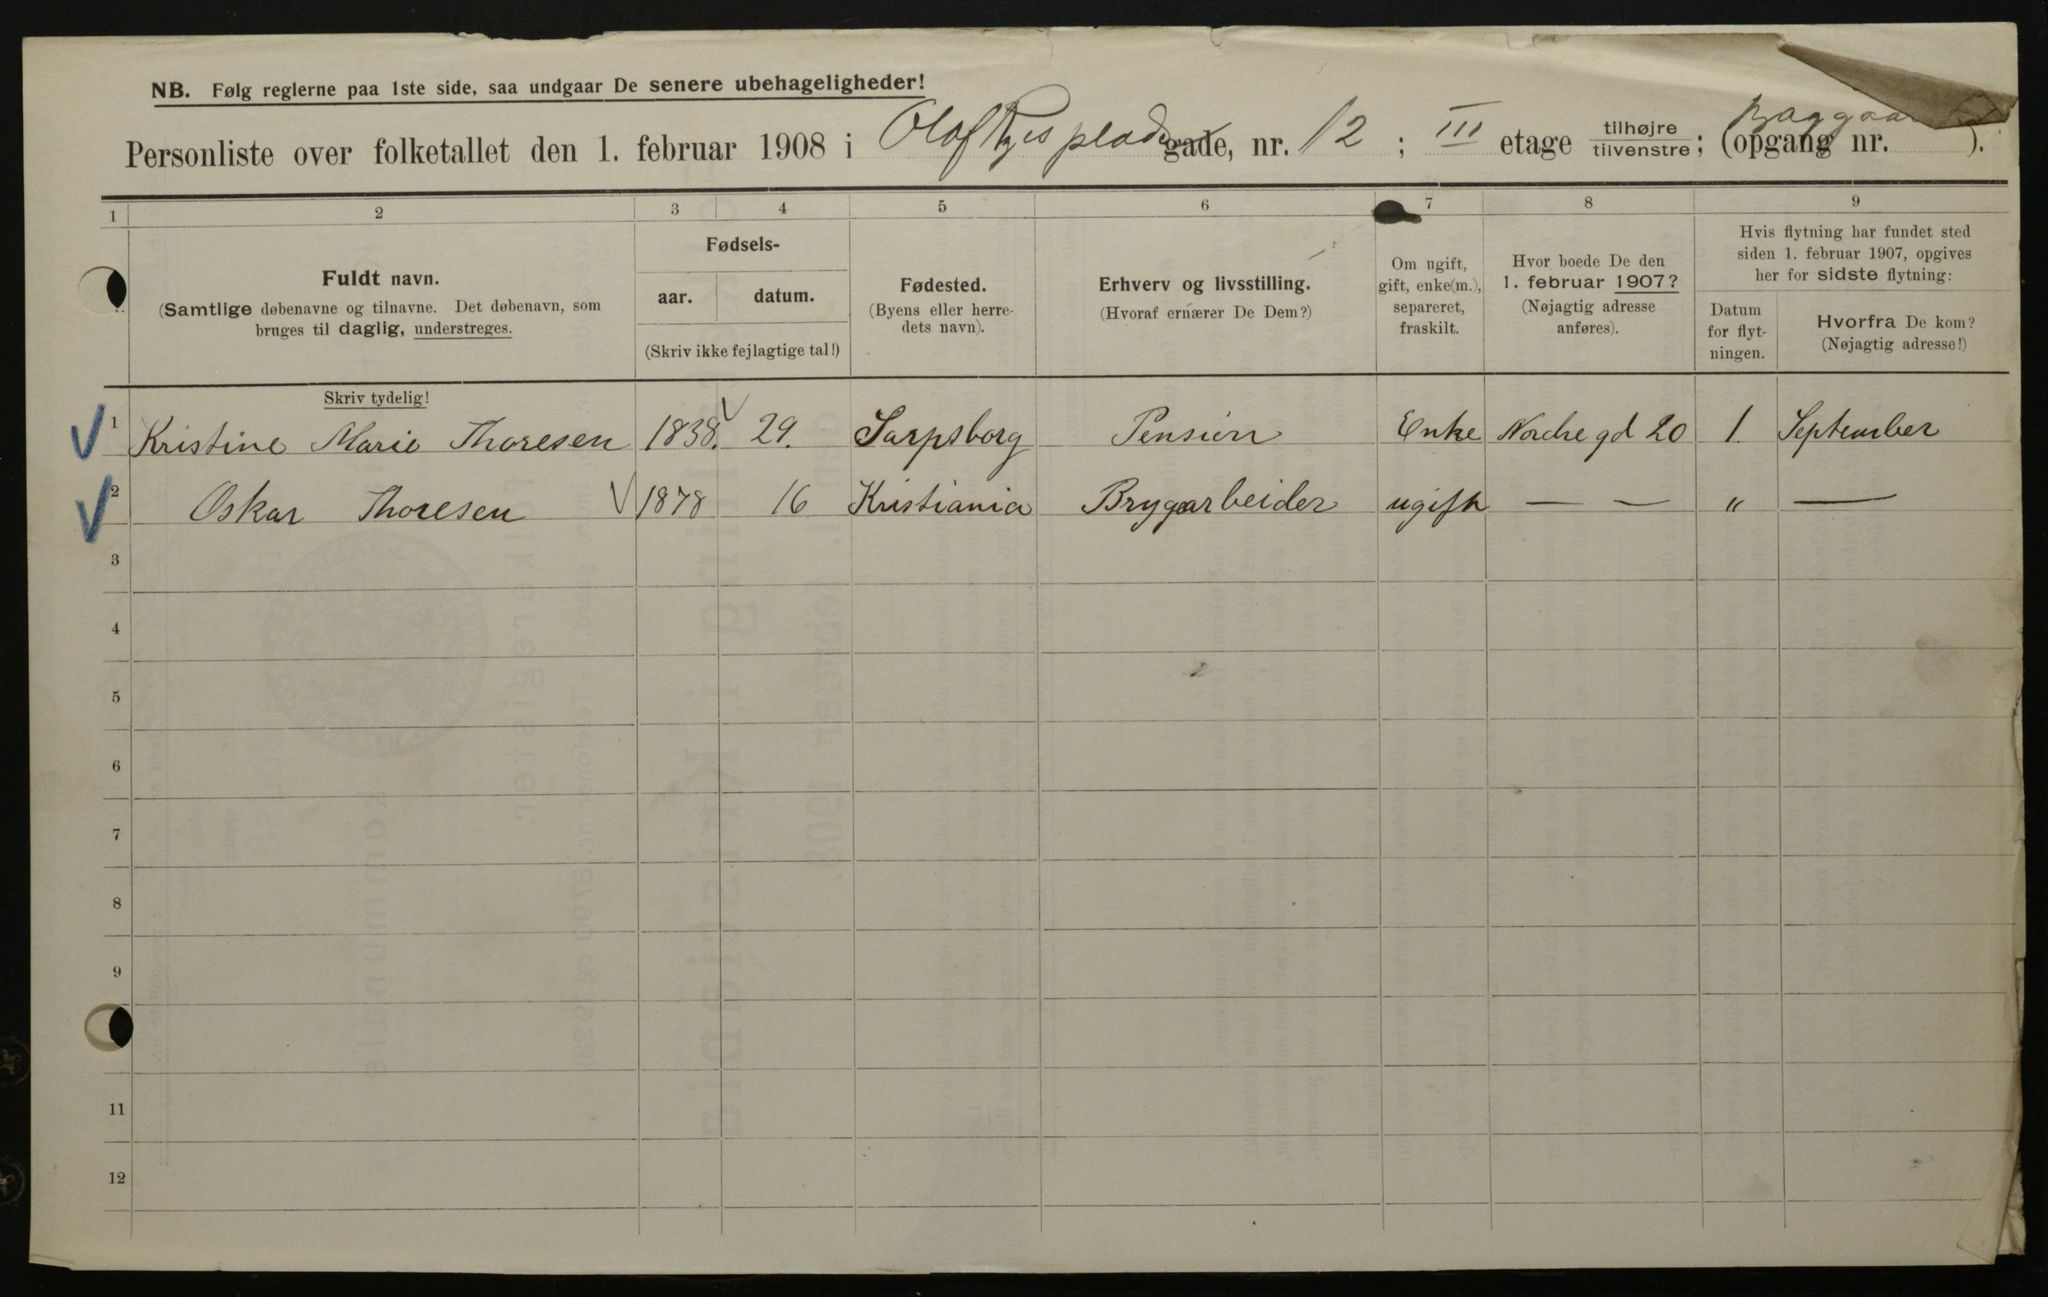 NB. Følg reglerne paa 1ste side, saa undgaar De senere ubehageligheder!
Personliste over folketallet den 1. februar 1908 i Olaf Ryes plads gade, nr. 12; III etage tilhøjre tilvenstre; (opgang nr. ).
1 2 3 4 5 6 7 8 9
Fuldt navn.
(Samtlige døbenavne og tilnavne. Det døbenavn, som
bruges til daglig, understreges.
Skriv tydelig!
Fødsels-
aar. datum.
(Skriv ikke fejlagtige tal!)
Fødested.
(Byens eller herre-
dets navn).
Erhverv og livsstilling.
(Hvoraf ernærer De Dem?)
Om ugift,
gift, enke(m.),
separeret,
fraskilt.
Hvor boede De den
1. februar 1907?
(Nøjagtig adresse
anføres).
Hvis flytning har fundet sted
siden 1. februar 1907, opgives
her for sidste flytning:
Datum
for flyt-
ningen.
Hvorfra De kom?
(Nøjagtig adresse!)
1 Kristine Marie Thoresen 1838. 29. Sarpsborg Pension Enke Nordre gd 20 1. September
2 Oskar Thoresen 1878 16 Kristiania Brygarbeider ugift — — " —
3
4
5
6
7
8
9
11
12